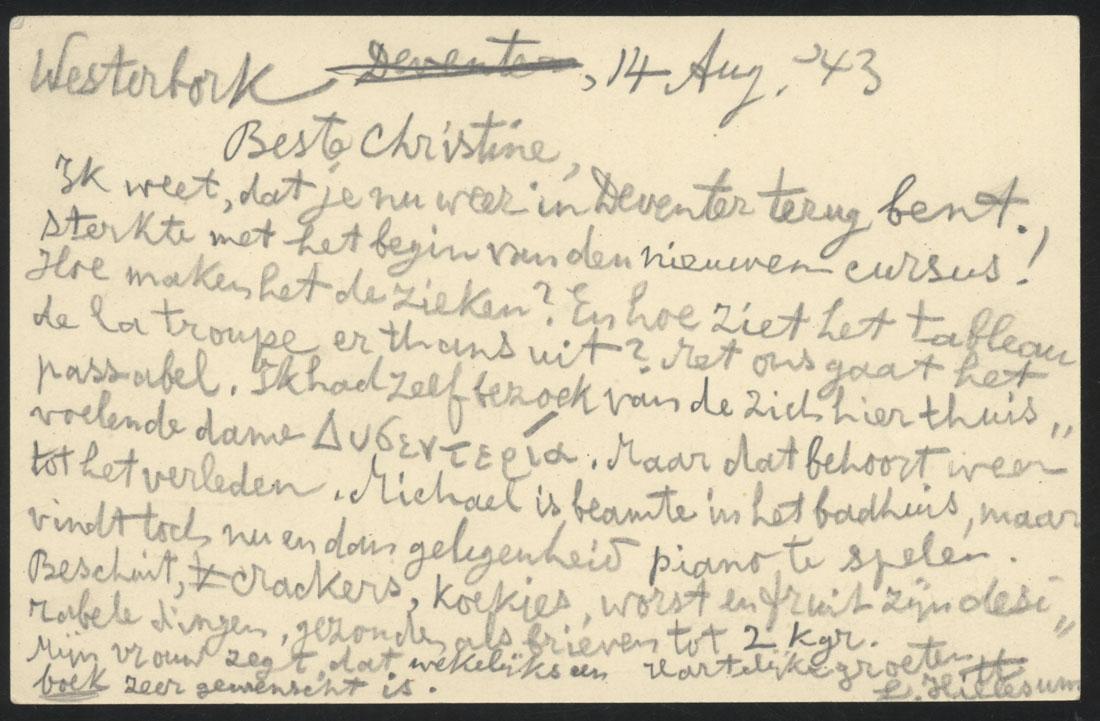 Westerbork, Deventer, 14 Aug. '43
Beste Christine,
Ik weet, dat je nu weer in Deventer terug bent.,
sterkte met het begin van den nieuwen cursus!
Hoe maken het de zieken? En hoe ziet het tableau
de la troupe er thans uit? Met ons gaat het
passabel. Ik had zelf bezoek van de zich hier thuis„
voelende dame Δυσεντερία. Maar dat behoort weer
tot het verleden. Michael is beamte in het badhuis, maar
vindt toch nu en dan gelegenheid piano te spelen.
Beschuit, crackers, koekjes, worst en fruit zijn desi„
rabele dingen, gezonden als brieven tot 2 kgr.
Mijn vrouw zegt, dat wekelijks een Hartelijke groeten
boek zeer gewenscht is. L. Hillesum